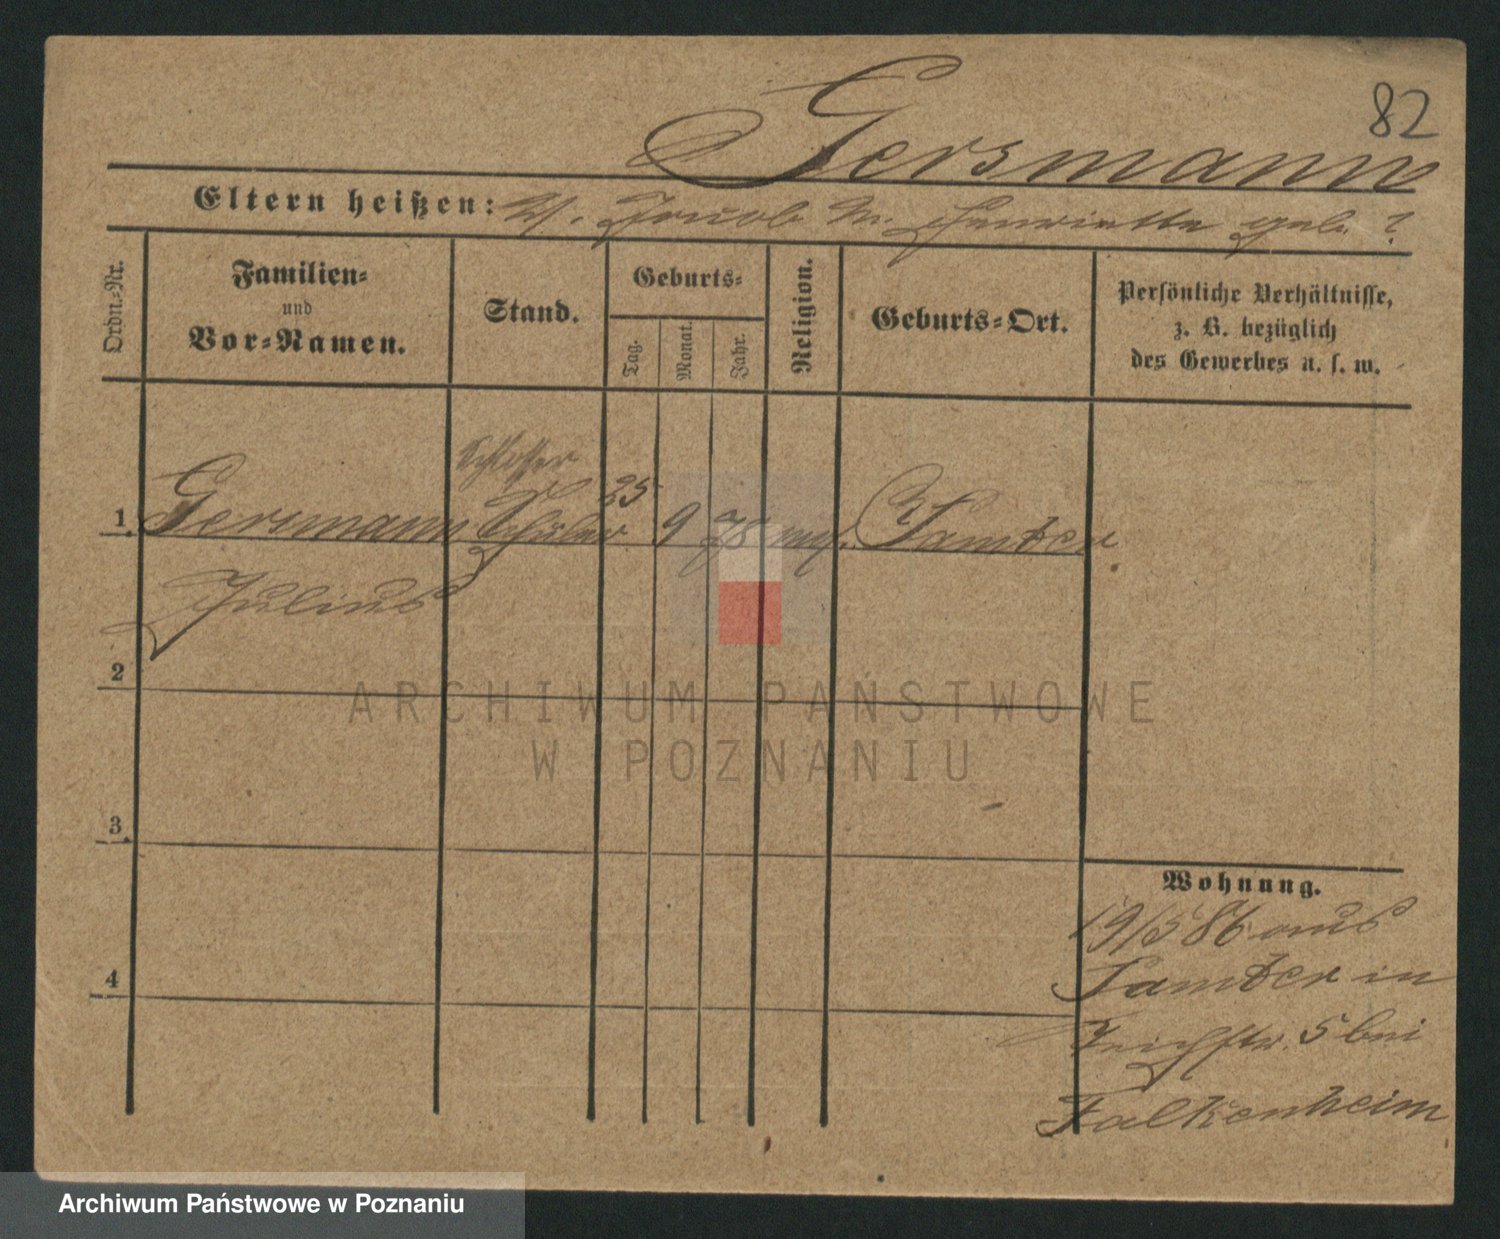 82
Gersmann
Eltern heißen: V. Jacob M. Henriette geb. ?
Ordn.-Nr.
Familien-
und
Vor-Namen.
Stand.
Geburts-
Tag.
Monat.
Jahr.
Religion.
Geburts-Ort.
Persönliche Verhältnisse,
z. B. bezüglich
des Gewerbes u. s. w.
Schlosser
1. Gersmann Schüler 25 9 73 Samter
Julius
2
3
4
Wohnung.
19/5 86 aus
Samter in
Teichstr. 5 bei
Falkenheim
ARCHIWUM PAŃSTWOWE
W POZNANIU
Archiwum Państwowe w Poznaniu